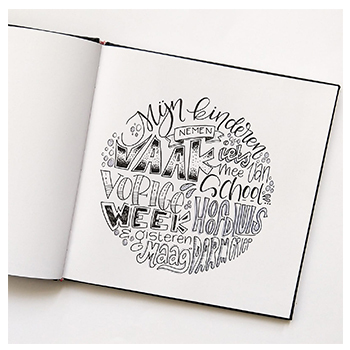 Mijn kinderen
NEMEN
VAAK vers
mee van
VORIGE School
WEEK HOOFDLUIS
gisteren
Maag DARM